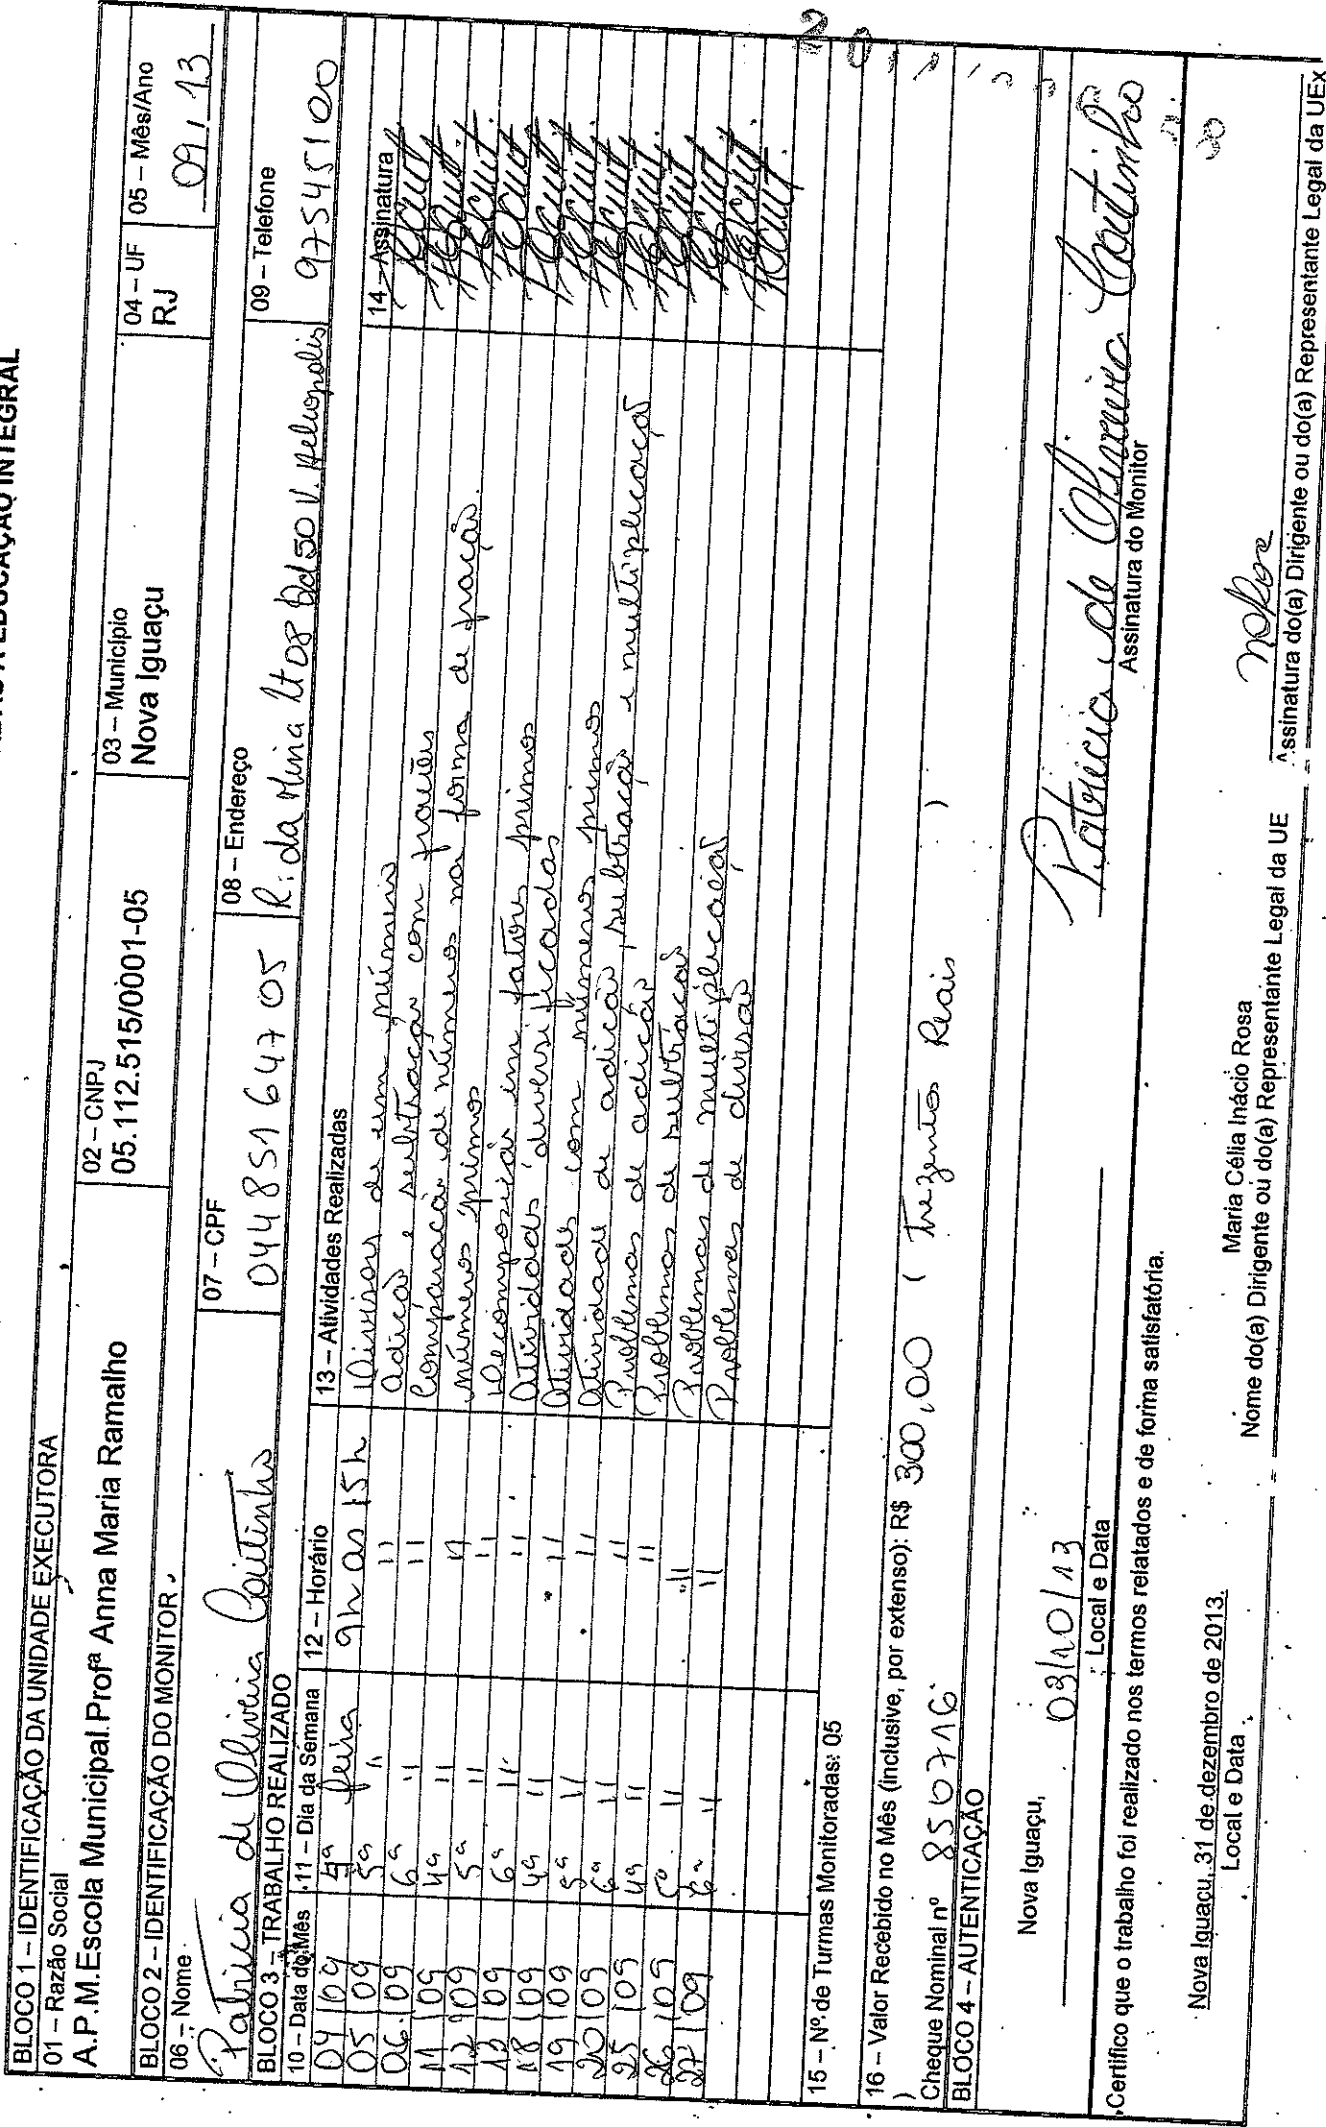 EDUCAÇÃO INTEGRAL
BLOCO 1 – IDENTIFICAÇÃO DA UNIDADE EXECUTORA
01 – Razão Social 02 – CNPJ 03 – Município 04 – UF 05 – Mês/Ano
A.P.M.Escola Municipal Profª Anna Maria Ramalho 05.112.515/0001-05 Nova Iguaçu RJ 09/13
BLOCO 2 – IDENTIFICAÇÃO DO MONITOR
06 – Nome 07 – CPF 08 – Endereço 09 – Telefone
Patricia de Oliveira Coutinho 044851647 05 R: da Mina Lt 08 Qd 50 V. Heliopolis 97545100
BLOCO 3 – TRABALHO REALIZADO
10 – Data do Mês 11 – Dia da Semana 12 – Horário 13 – Atividades Realizadas 14 – Assinatura
04/09 4ª feira 9h as 15h Divisores de um número
05/09 5ª " " Adição e subtração com frações
06/09 6ª " " Comparação de números na forma de fração.
11/09 4ª " " números primos
12/09 5ª " " Decomposição em fatores primos
13/09 6ª " " Atividades diversificadas
18/09 4ª " " Atividades com números primos
19/09 5ª " " Atividade de adição, subtração e multiplicação
20/09 6ª " " Problemas de adição
25/09 4ª " " Problemas de subtração
26/09 5ª " " Problemas de multiplicação
27/09 6ª " " Problemas de divisão
15 – Nº de Turmas Monitoradas: 05
16 – Valor Recebido no Mês (inclusive, por extenso): R$ 300,00 ( Trezentos Reais )
)
Cheque Nominal nº 850716
BLOCO 4 – AUTENTICAÇÃO
Nova Iguaçu, 03/10/13 Patricia de Oliveira Coutinho
Local e Data Assinatura do Monitor
Certifico que o trabalho foi realizado nos termos relatados e de forma satisfatória.
Nova Iguaçu, 31 de dezembro de 2013. Maria Célia Inácio Rosa
Local e Data Nome do(a) Dirigente ou do(a) Representante Legal da UE Assinatura do(a) Dirigente ou do(a) Representante Legal da UEx